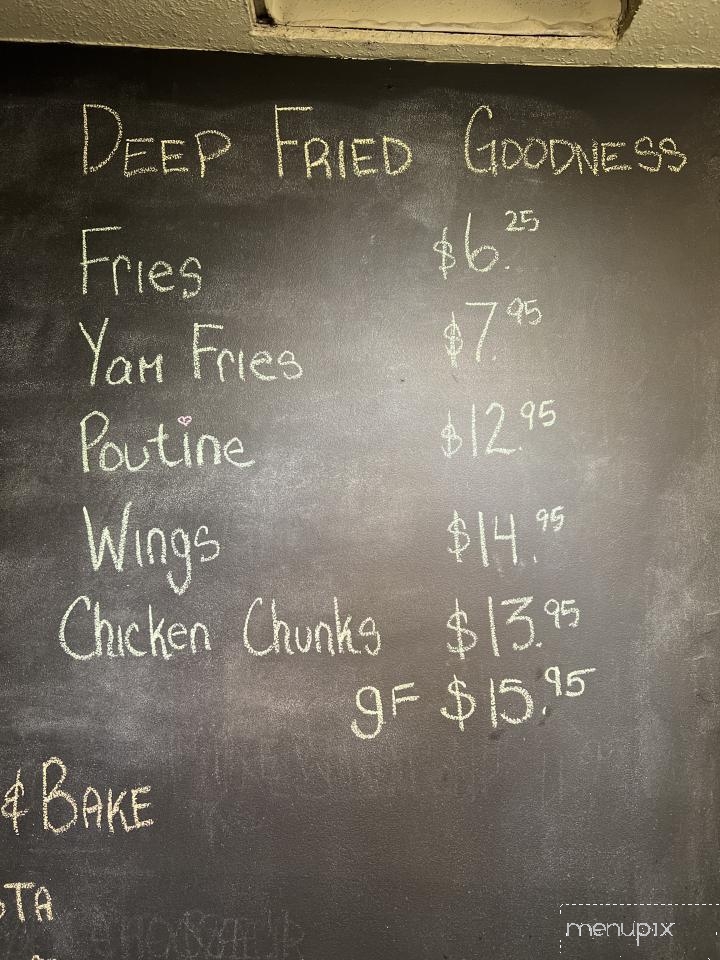 DEEP FRIED GOODNESS
Fries $6.25
Yam Fries $7.95
Poutine $12.95
Wings $14.95
Chicken Chunks $13.95
gF $15.95
& BAKE
STA
menupix